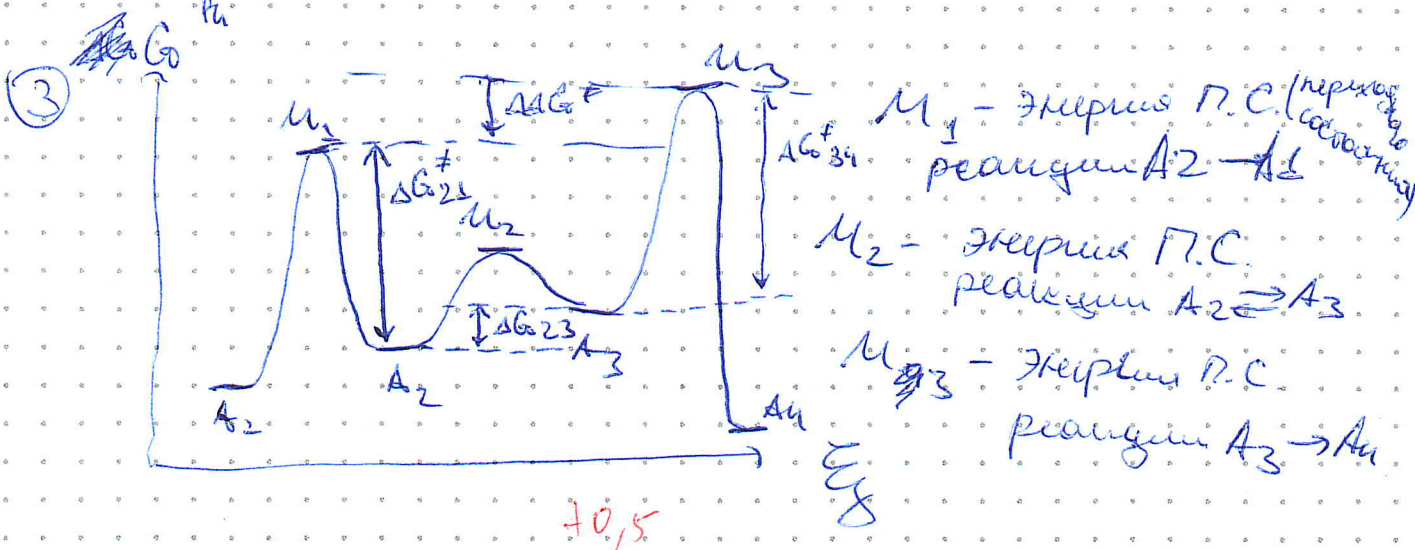 G₀
③
M₁
ΔΔG≠
M₃
ΔG₀≠₂₁
M₂
ΔG₀≠₃₄
ΔG₀₂₃
A₂
A₂
A₃
A₄
ξ
M₁ – энергия П.С. (переходного состояния)
реакции A2 → A1
M₂ – энергия П.С.
реакции A₂ ⇄ A₃
M₃ – энергия П.С.
реакции A₃ → A₄
+0,5